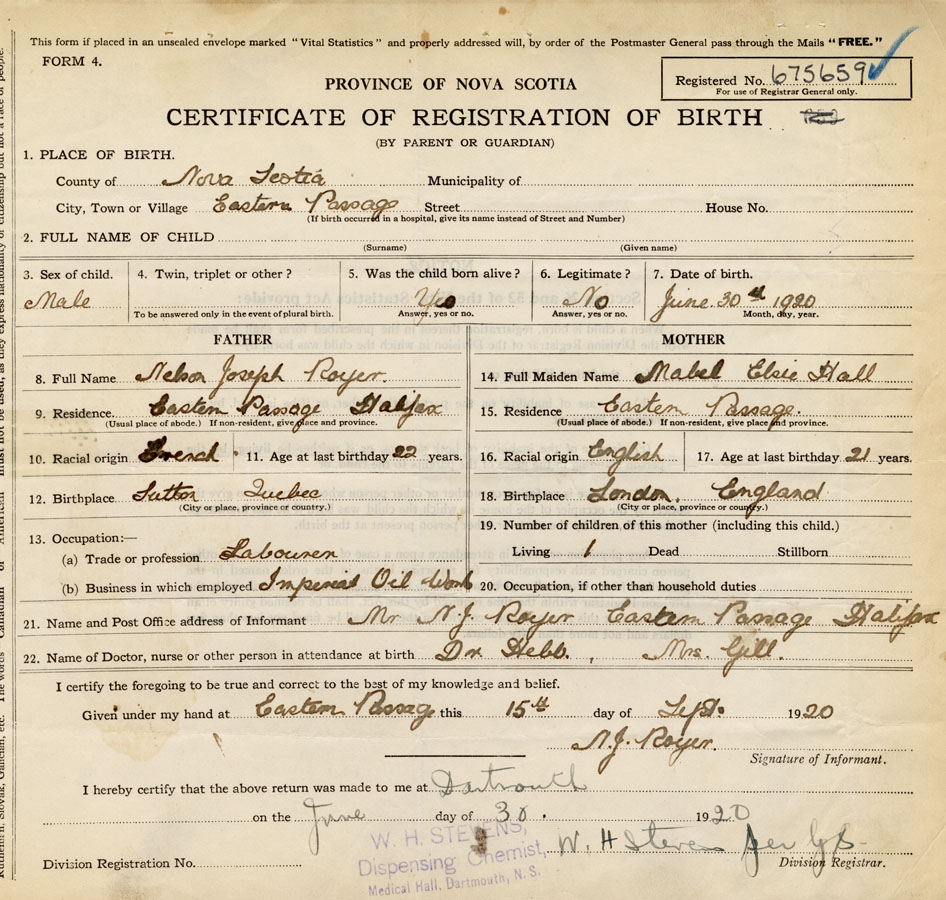 This form if placed in an unsealed envelope marked "Vital Statistics" and properly addressed will, by order of the Postmaster General pass through the Mails "FREE."
FORM 4.
Registered No. 675659
For use of Registrar General only.
PROVINCE OF NOVA SCOTIA
CERTIFICATE OF REGISTRATION OF BIRTH
(BY PARENT OR GUARDIAN)
1. PLACE OF BIRTH.
County of Nova Scotia Municipality of
City, Town or Village Eastern Passage Street House No.
(If birth occurred in a hospital, give its name instead of Street and Number)
2. FULL NAME OF CHILD
(Surname) (Given name)
3. Sex of child. 4. Twin, triplet or other? 5. Was the child born alive? 6. Legitimate? 7. Date of birth.
Male Yes No June 30th 1920
To be answered only in the event of plural birth. Answer, yes or no. Answer, yes or no. Month, day, year.
FATHER MOTHER
8. Full Name Nelson Joseph Royer. 14. Full Maiden Name Mabel Elsie Hall
9. Residence. Eastern Passage Halifax 15. Residence Eastern Passage.
(Usual place of abode.) If non-resident, give place and province. (Usual place of abode.) If non-resident, give place and province.
10. Racial origin French 11. Age at last birthday 22 years. 16. Racial origin English 17. Age at last birthday 21 years.
12. Birthplace Sutton Quebec 18. Birthplace London, England
(City or place, province or country.) (City or place, province or country.)
13. Occupation:— 19. Number of children of this mother (including this child.)
(a) Trade or profession Labourer Living 1 Dead Stillborn
(b) Business in which employed Imperial Oil Work 20. Occupation, if other than household duties
21. Name and Post Office address of Informant Mr N.J. Royer Eastern Passage Halifax
22. Name of Doctor, nurse or other person in attendance at birth Dr. Hebb, Mrs. Gill.
I certify the foregoing to be true and correct to the best of my knowledge and belief.
Given under my hand at Eastern Passage this 15th day of Sept. 1920
N.J. Royer.
Signature of Informant.
I hereby certify that the above return was made to me at Dartmouth
on the June day of 30. 1920
W. H. STEVENS,
Dispensing Chemist,
Medical Hall, Dartmouth, N. S.
W H Stevens per
Division Registration No. Division Registrar.